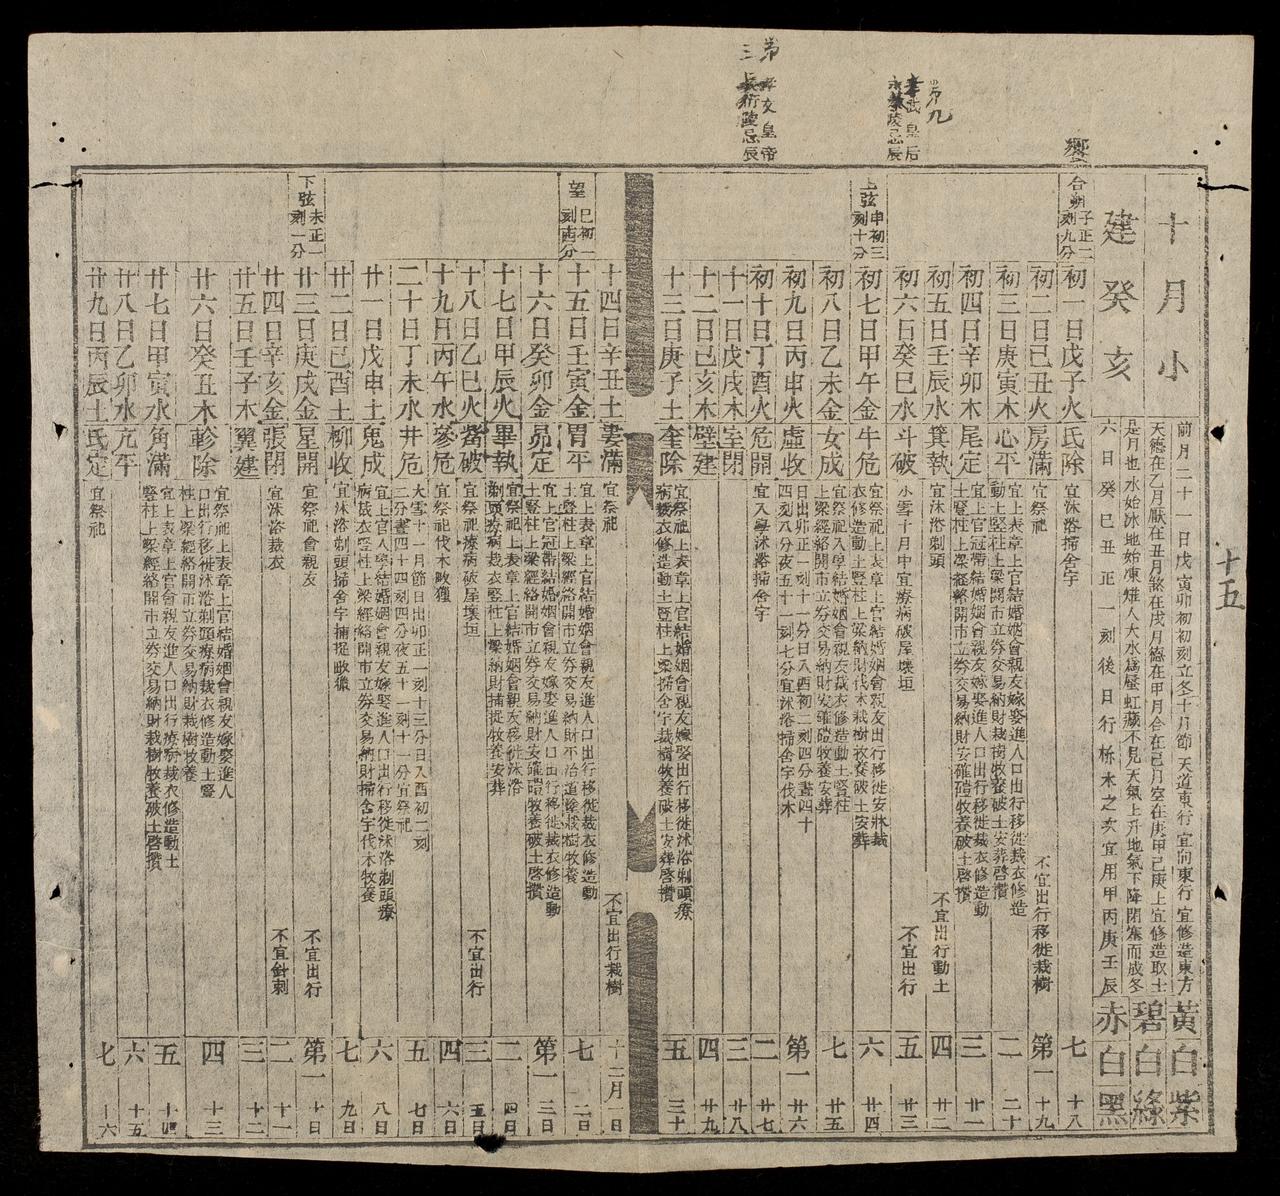 十月小
建癸亥
前月二十一日戊寅卯初初刻立冬十月節 天道東行 宜向東行 宜修造東方
天德在乙月厭在丑月煞在戌月德在甲月合在己月空在庚甲己庚上宜修造取土
是月也水始冰地始凍雉入大水爲蜃虹藏不見天氣上升地氣下降閉塞而成冬
六日癸巳丑正一刻後日行析木之次宜用甲丙庚壬辰
黃白紫
碧白綠
赤白黑
十五
合朔子正二刻九分
初一日戊子火氐除 宜沐浴掃舍宇 七 十八
初二日己丑火房滿 宜祭祀 不宜出行移徙栽樹 第一 十九
初三日庚寅木心平 宜上表章上官結婚姻會親友嫁娶進人口出行移徙裁衣修造
動土豎柱上梁開市立券交易納財栽樹牧養破土安葬啓攢 二 二十
初四日辛卯木尾定 宜上官冠帶結婚姻會親友嫁娶進人口出行移徙裁衣修造動
土豎柱上梁經絡開市立券交易納財安碓磑牧養破土啓攢 三 廿一
初五日壬辰水箕執 宜沐浴剃頭 不宜出行動土 四 廿二
初六日癸巳水斗破 小雪十月中宜療病破屋壞垣 不宜出行 五 廿三
上弦申初三刻十分
初七日甲午金牛危 宜祭祀上表章上官結婚姻會親友出行移徙安牀裁
衣修造動土豎柱上梁納財伐木栽樹牧養破土安葬 六 廿四
初八日乙未金女成 宜祭祀入學結婚姻會親友裁衣修造動土豎柱
上梁經絡開市立券交易納財安碓磑牧養安葬 七 廿五
初九日丙申火虛收 日出卯正一刻十一分日入酉初二刻四分晝四十
四刻八分夜五十一刻七分宜沐浴掃舍宇伐木 第一 廿六
初十日丁酉火危開 宜入學沐浴掃舍宇 二 廿七
十一日戊戌木室閉 三 廿八
十二日己亥木壁建 四 廿九
十三日庚子土奎除 宜祭祀上表章上官結婚姻會親友嫁娶出行移徙沐浴剃頭療
病裁衣修造動土豎柱上梁掃舍宇栽樹牧養破土安葬啓攢 五 三十
十四日辛丑土婁滿 不宜出行栽樹 十二月一日
望巳初一刻十四分
十五日壬寅金胃平 宜上表章上官結婚姻會親友進人口出行移徙裁衣修造動
土豎柱上梁經絡開市立券交易納財平治道塗栽樹牧養 七 二日
十六日癸卯金昴定 宜上官冠帶結婚姻會親友嫁娶進人口出行移徙裁衣修造動
土豎柱上梁經絡開市立券交易納財安碓磑牧養破土啓攢 第一 三日
十七日甲辰火畢執 宜祭祀上表章上官結婚姻會親友移徙沐浴
剃頭療病裁衣豎柱上梁納財捕捉牧養安葬 二 四日
十八日乙巳火觜破 宜祭祀療病破屋壞垣 不宜出行 三 五日
十九日丙午水參危 宜祭祀伐木畋獵 四 六日
二十日丁未水井危 大雪十一月節日出卯正一刻十三分日入酉初二刻
二分晝四十四刻四分夜五十一刻十一分宜祭祀 五 七日
廿一日戊申土鬼成 宜上官入學結婚姻會親友嫁娶進人口出行移徙沐浴剃頭療
病裁衣豎柱上梁經絡開市立券交易納財掃舍宇伐木牧養 六 八日
廿二日己酉土柳收 宜沐浴剃頭掃舍宇捕捉畋獵 七 九日
下弦未正一刻一分
廿三日庚戌金星開 宜祭祀會親友 不宜出行 第一 十日
廿四日辛亥金張閉 宜沐浴裁衣 不宜針刺 二 十一
廿五日壬子木翼建 三 十二
廿六日癸丑木軫除 宜祭祀上表章上官結婚姻會親友嫁娶進人
口出行移徙沐浴剃頭療病裁衣修造動土豎
柱上梁經絡開市立券交易納財栽樹牧養 四 十三
廿七日甲寅水角滿 宜上表章上官會親友進人口出行療病裁衣修造動土
豎柱上梁經絡開市立券交易納財栽樹牧養破土啓攢 五 十四
廿八日乙卯水亢平 六 十五
廿九日丙辰土氐定 宜祭祀 七 十六
饗
第九
皇后
陵忌辰
第三
文皇帝
陵忌辰